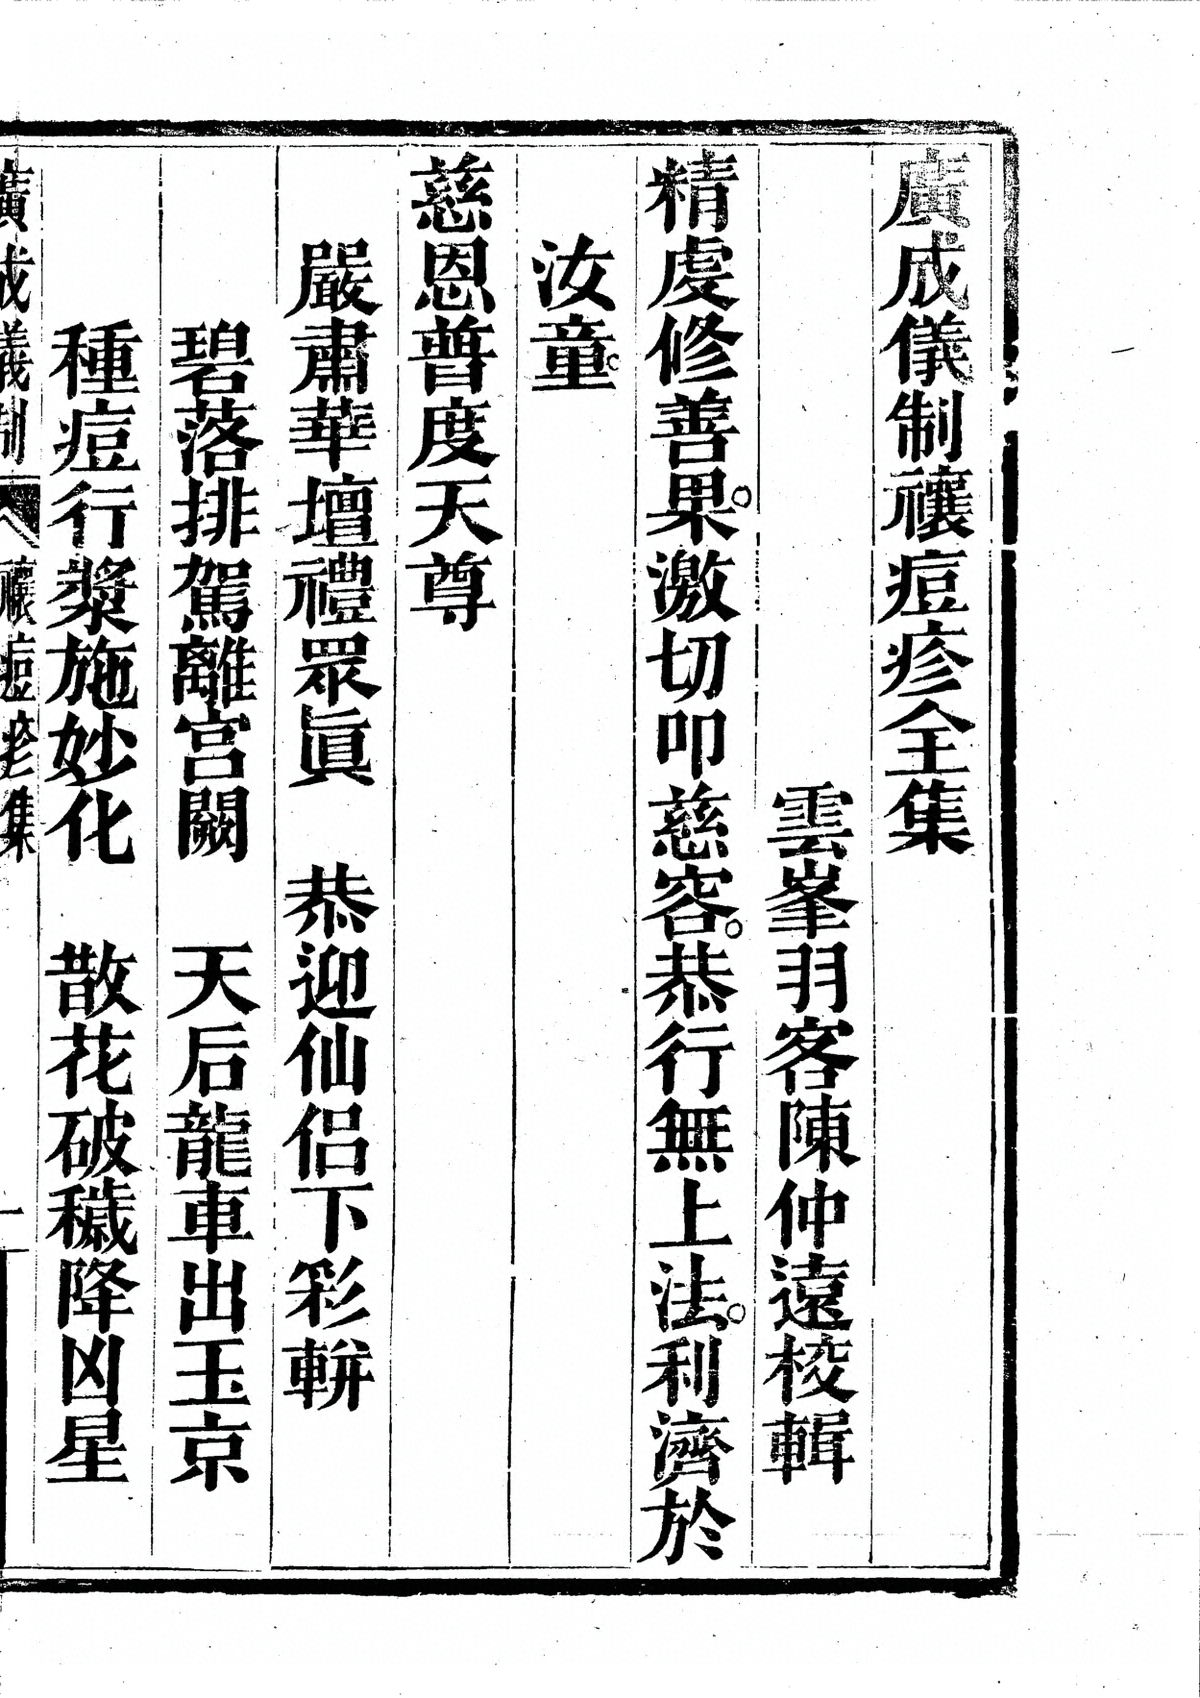 廣成儀制禳痘疹全集
雲峯羽客陳仲遠校輯
精虔修善果。激切叩慈容。恭行無上法。利濟於
汝童。
慈恩普度天尊
嚴肅華壇禮眾眞　恭迎仙侣下彩軿
碧落排駕離宮闕　天后龍車出玉京
種痘行漿施妙化　散花破穢降凶星
廣成儀制　禳痘疹集　一